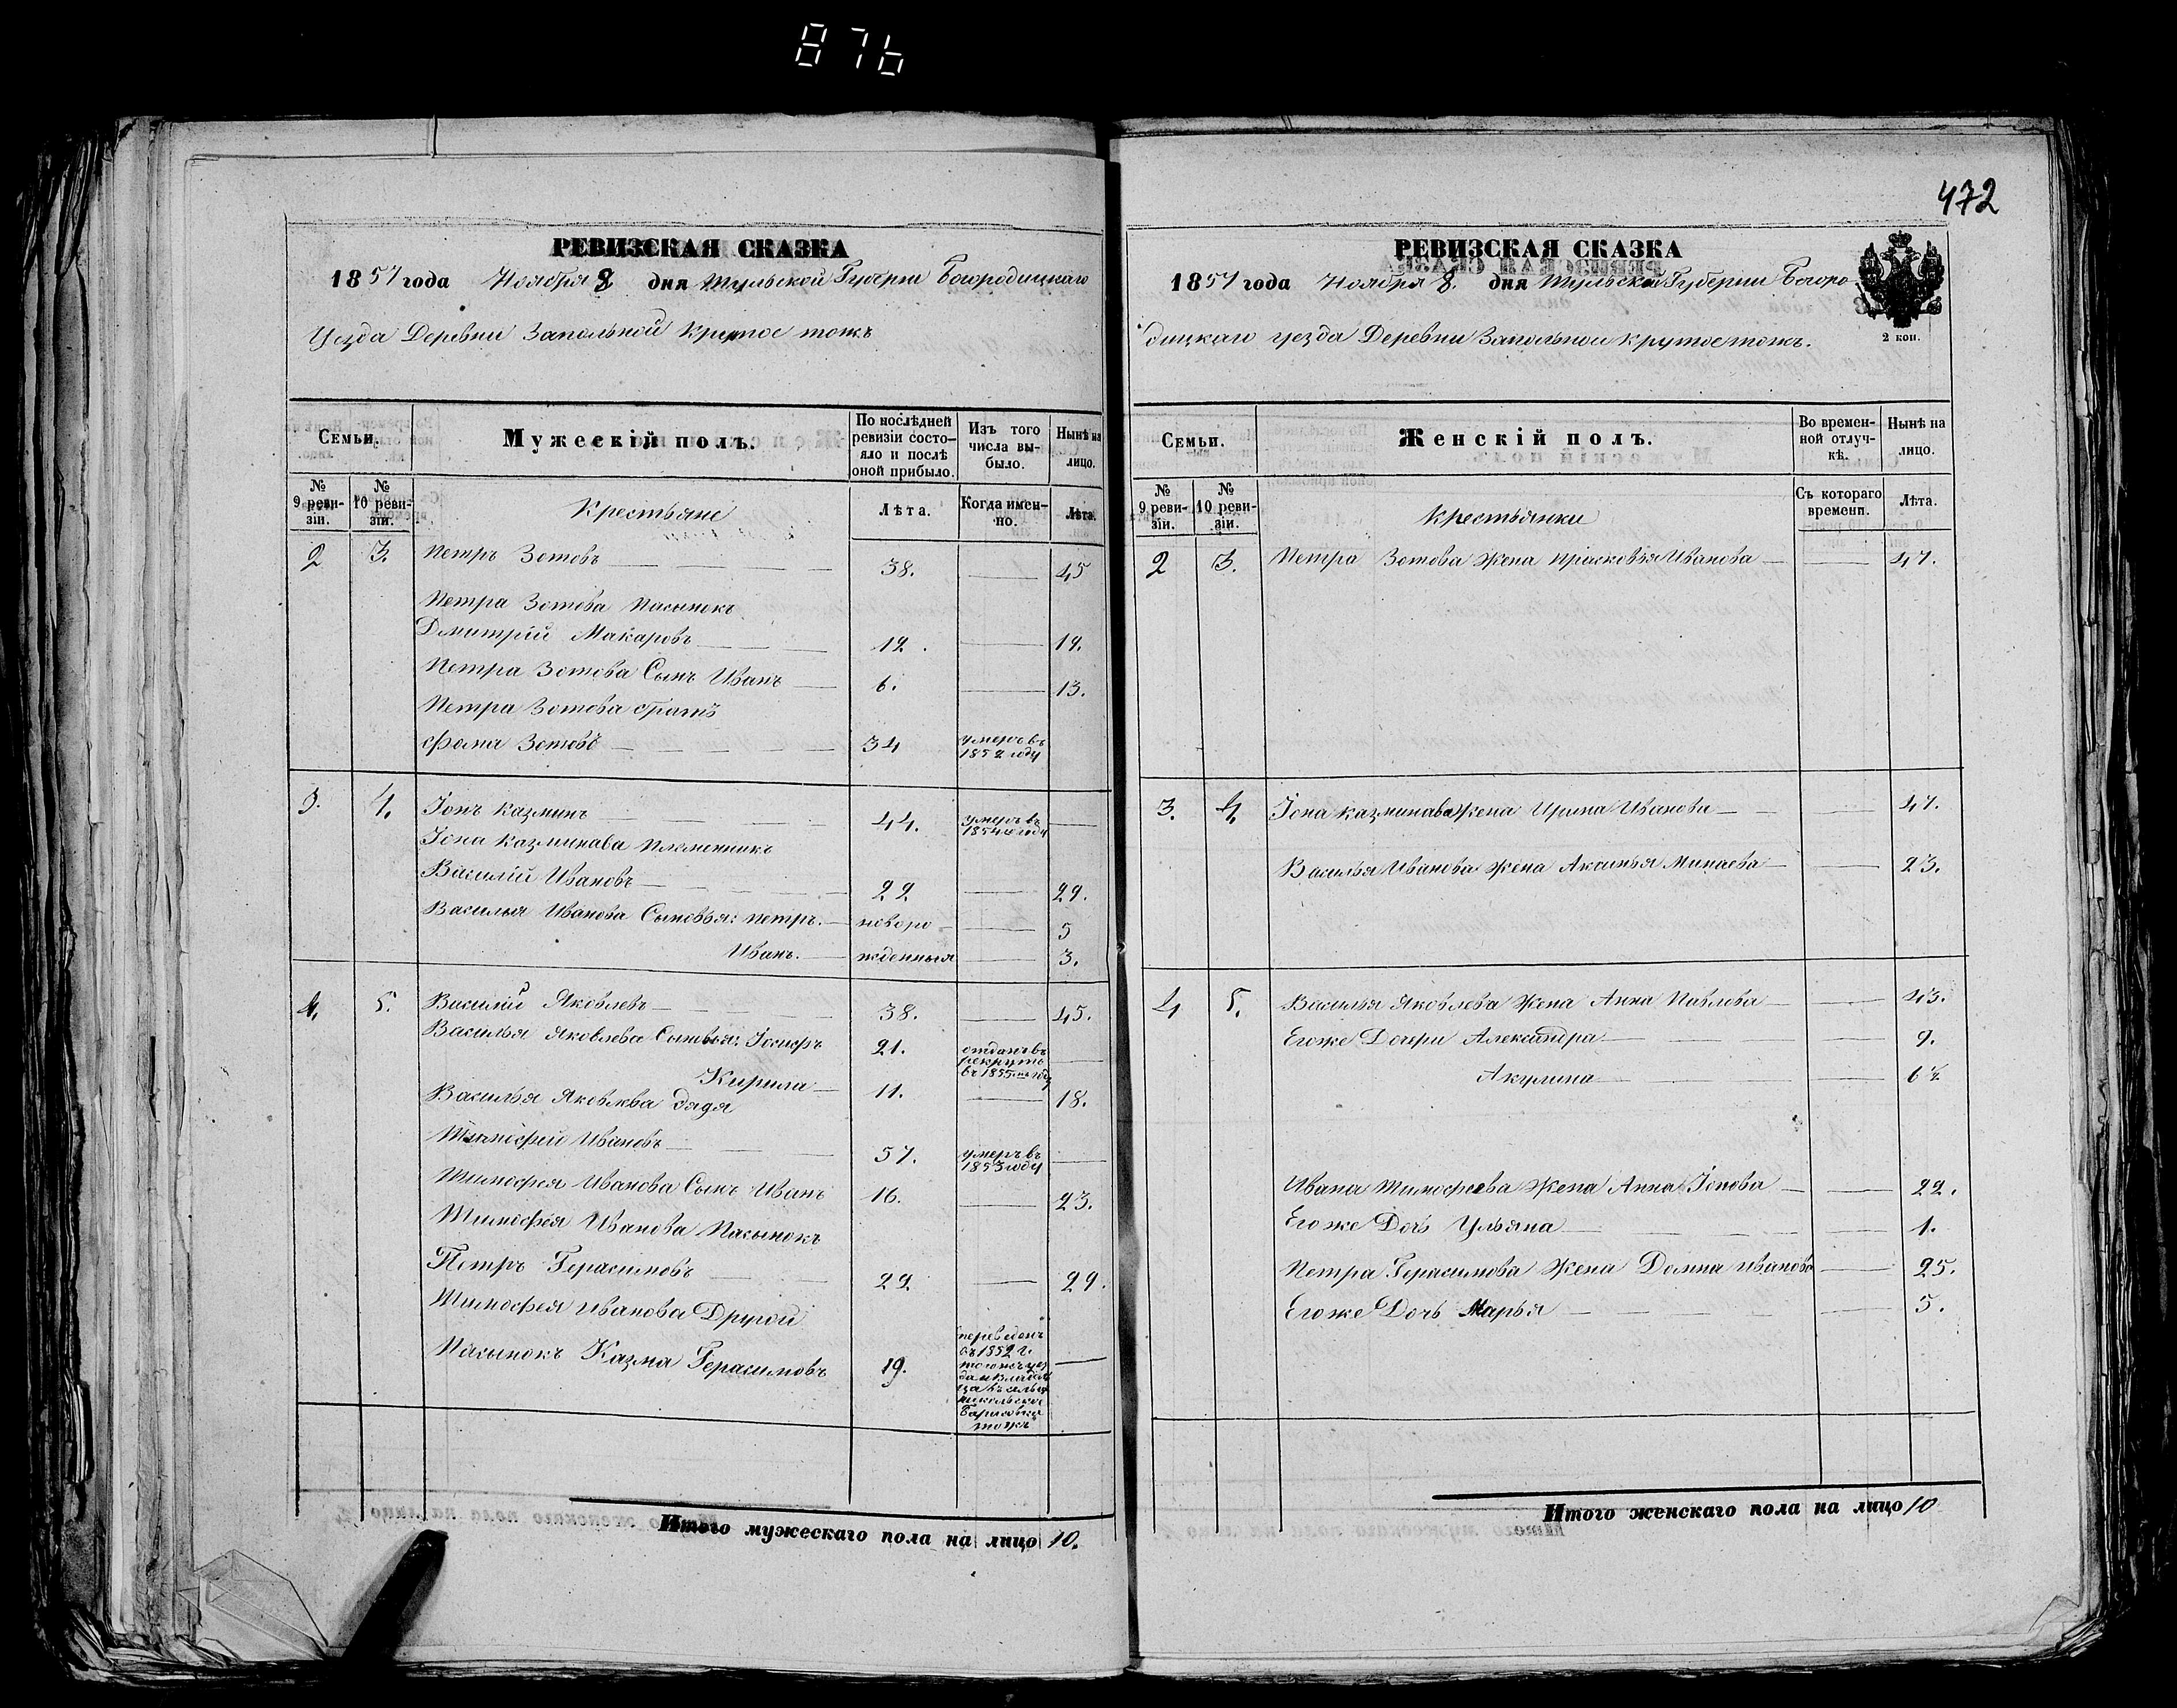 876
472
РЕВИЗСКАЯ СКАЗКА
1857 года Ноября 8 дня Тульской Губерни Богородицкаго
Уезда Деревни Запольной Крутое тожъ
Семьи.
Мужескій полъ.
По послѣдней ревизіи состояло и послѣ оной прибыло.
Изъ того числа выбыло.
Нынѣ на лицо.
№ 9 ревизіи.
№ 10 ревизіи.
Крестьяне
Лѣта.
Когда именно.
Лѣта.
2 3. Петръ Зотовъ 38. 45
Петра Зотова Пасынокъ
Дмитрій Макаровъ 12. 19.
Петра Зотова Сынъ Иванъ 6. 13.
Петра Зотова братъ
Фома Зотовъ 34 умеръ въ 1852 году
3. 4. Іонъ Казминъ 44. умеръ въ 1854 году
Іона Казминава племенникъ
Василій Ивановъ 22 29.
Василья Иванова Сыновья: Петръ. новоро 5
Иванъ. жденныя 3.
4. 5. Василій Яковлевъ 38. 45.
Василья Яковлева Сыновья: Іосифъ 21. отданъ въ рекруты въ 1855 году
Кирила 11. 18.
Василья Яковлева дядя
Тимофей Ивановъ 57. умеръ въ 1853 году
Тимофея Иванова Сынъ Иванъ 16. 23.
Тимофея Иванова Пасынокъ
Петръ Герасимовъ 22. 29.
Тимофея Иванова Другой
Пасынокъ Казма Герасимовъ 19. переведенъ въ 1852 г. тогожъ уез
тожъ
Итого мужескаго пола на лицо 10.
РЕВИЗСКАЯ СКАЗКА
1857 года Ноября 8. дня Тульской Губернии Богоро-
дицкаго уезда Деревни Запольной Крутое тожъ.
2 коп.
Семьи.
Женскій полъ.
Во временной отлучкѣ.
Нынѣ на лицо.
№ 9 ревизіи.
№ 10 ревизіи.
Крестьянки
Съ котораго времени.
Лѣта.
2 3. Петра Зотова Жена Прасковья Иванова 47.
3. 4. Іона Казминава Жена Ирина Иванова 47.
Василья Иванова Жена Аксинья Минаева 23.
4 5. Василья Яковлева Жена Анна Павлова 43.
Егоже Дочери Александра 9.
Акулина
Ивана Тимофеева Жена Анна Іонова 22.
Егоже Дочь Ульяна 1.
Петра Герасимова Жена Домна Иванова 25.
Егоже Дочь Марья 5.
Итого женскаго пола на лицо 10